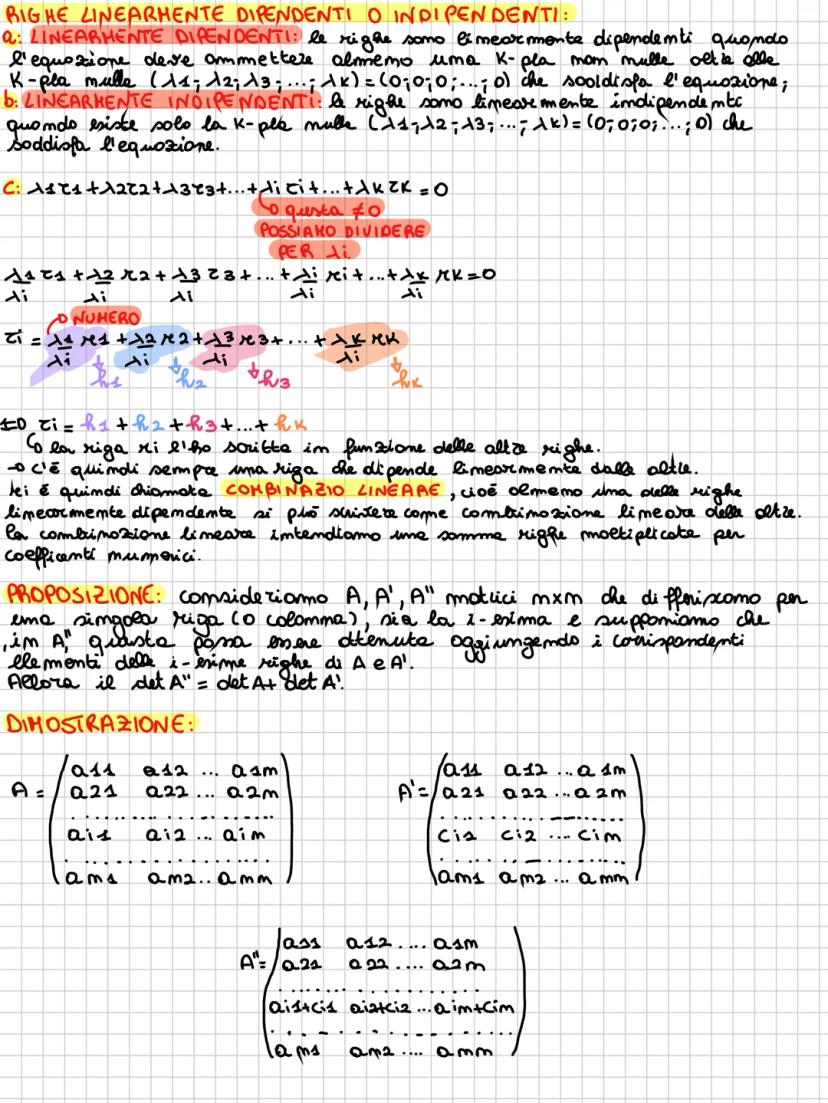 RIGHE LINEARMENTE DIPENDENTI O INDIPENDENTI:
a: LINEARMENTE DIPENDENTI: le righe sono linearmente dipendenti quando
l'equazione deve ammettere almeno una K-pla non nulla oltre alla
K-pla nulla (λ1; λ2; λ3; ...; λk)=(0;0;0;...;0) che soddisfa l'equazione;
b: LINEARMENTE INDIPENDENTI: le righe sono linearmente indipendenti
quando esiste solo la K-pla nulla (λ1;λ2;λ3;...;λk)=(0;0;0;...;0) che
soddisfa l'equazione.
C: λ1r1+λ2r2+λ3r3+...+λiri+...+λkrk=0
questa ≠0
POSSIAMO DIVIDERE
PER λi.
λ1/λi r1 + λ2/λi r2 + λ3/λi r3 + ... + λi/λi ri + ... + λk/λi rk=0
NUMERO
ri = λ1/λi r1 + λ2/λi r2 + λ3/λi r3 + ... + λk/λi rk
h1 h2 h3 hk
=D ri = h1 + h2 + h3 + ... + hk
la riga ri l'ho scritta in funzione delle altre righe.
→ c'è quindi sempre una riga che dipende linearmente dalle altre.
ri è quindi chiamata COMBINAZIO LINEARE, cioè almeno una delle righe
linearmente dipendente si può scrivere come combinazione lineare delle altre.
Per combinazione lineare intendiamo una somma righe moltiplicate per
coefficenti numerici.
PROPOSIZIONE: consideriamo A, A', A'' matrici nxn che differiscono per
una singola riga (o colonna), sia la i-esima e supponiamo che
, in A'', questa possa essere ottenuta aggiungendo i corrispondenti
elementi delle i-esime righe di A e A'.
Allora il det A'' = det A + det A'.
DIMOSTRAZIONE:
A = (a11 a12 ... a1n
a21 a22 ... a2n
..................
ai1 ai2 ... ain
..................
an1 an2 .. ann)
A' = (a11 a12 ... a1n
a21 a22 ... a2n
..................
ci1 ci2 ... cin
..................
an1 an2 ... ann)
A'' = (a11 a12 .... a1n
a21 a22 .... a2n
..................
ai1+ci1 ai2+ci2 ... ain+cin
..................
an1 an2 .... ann)